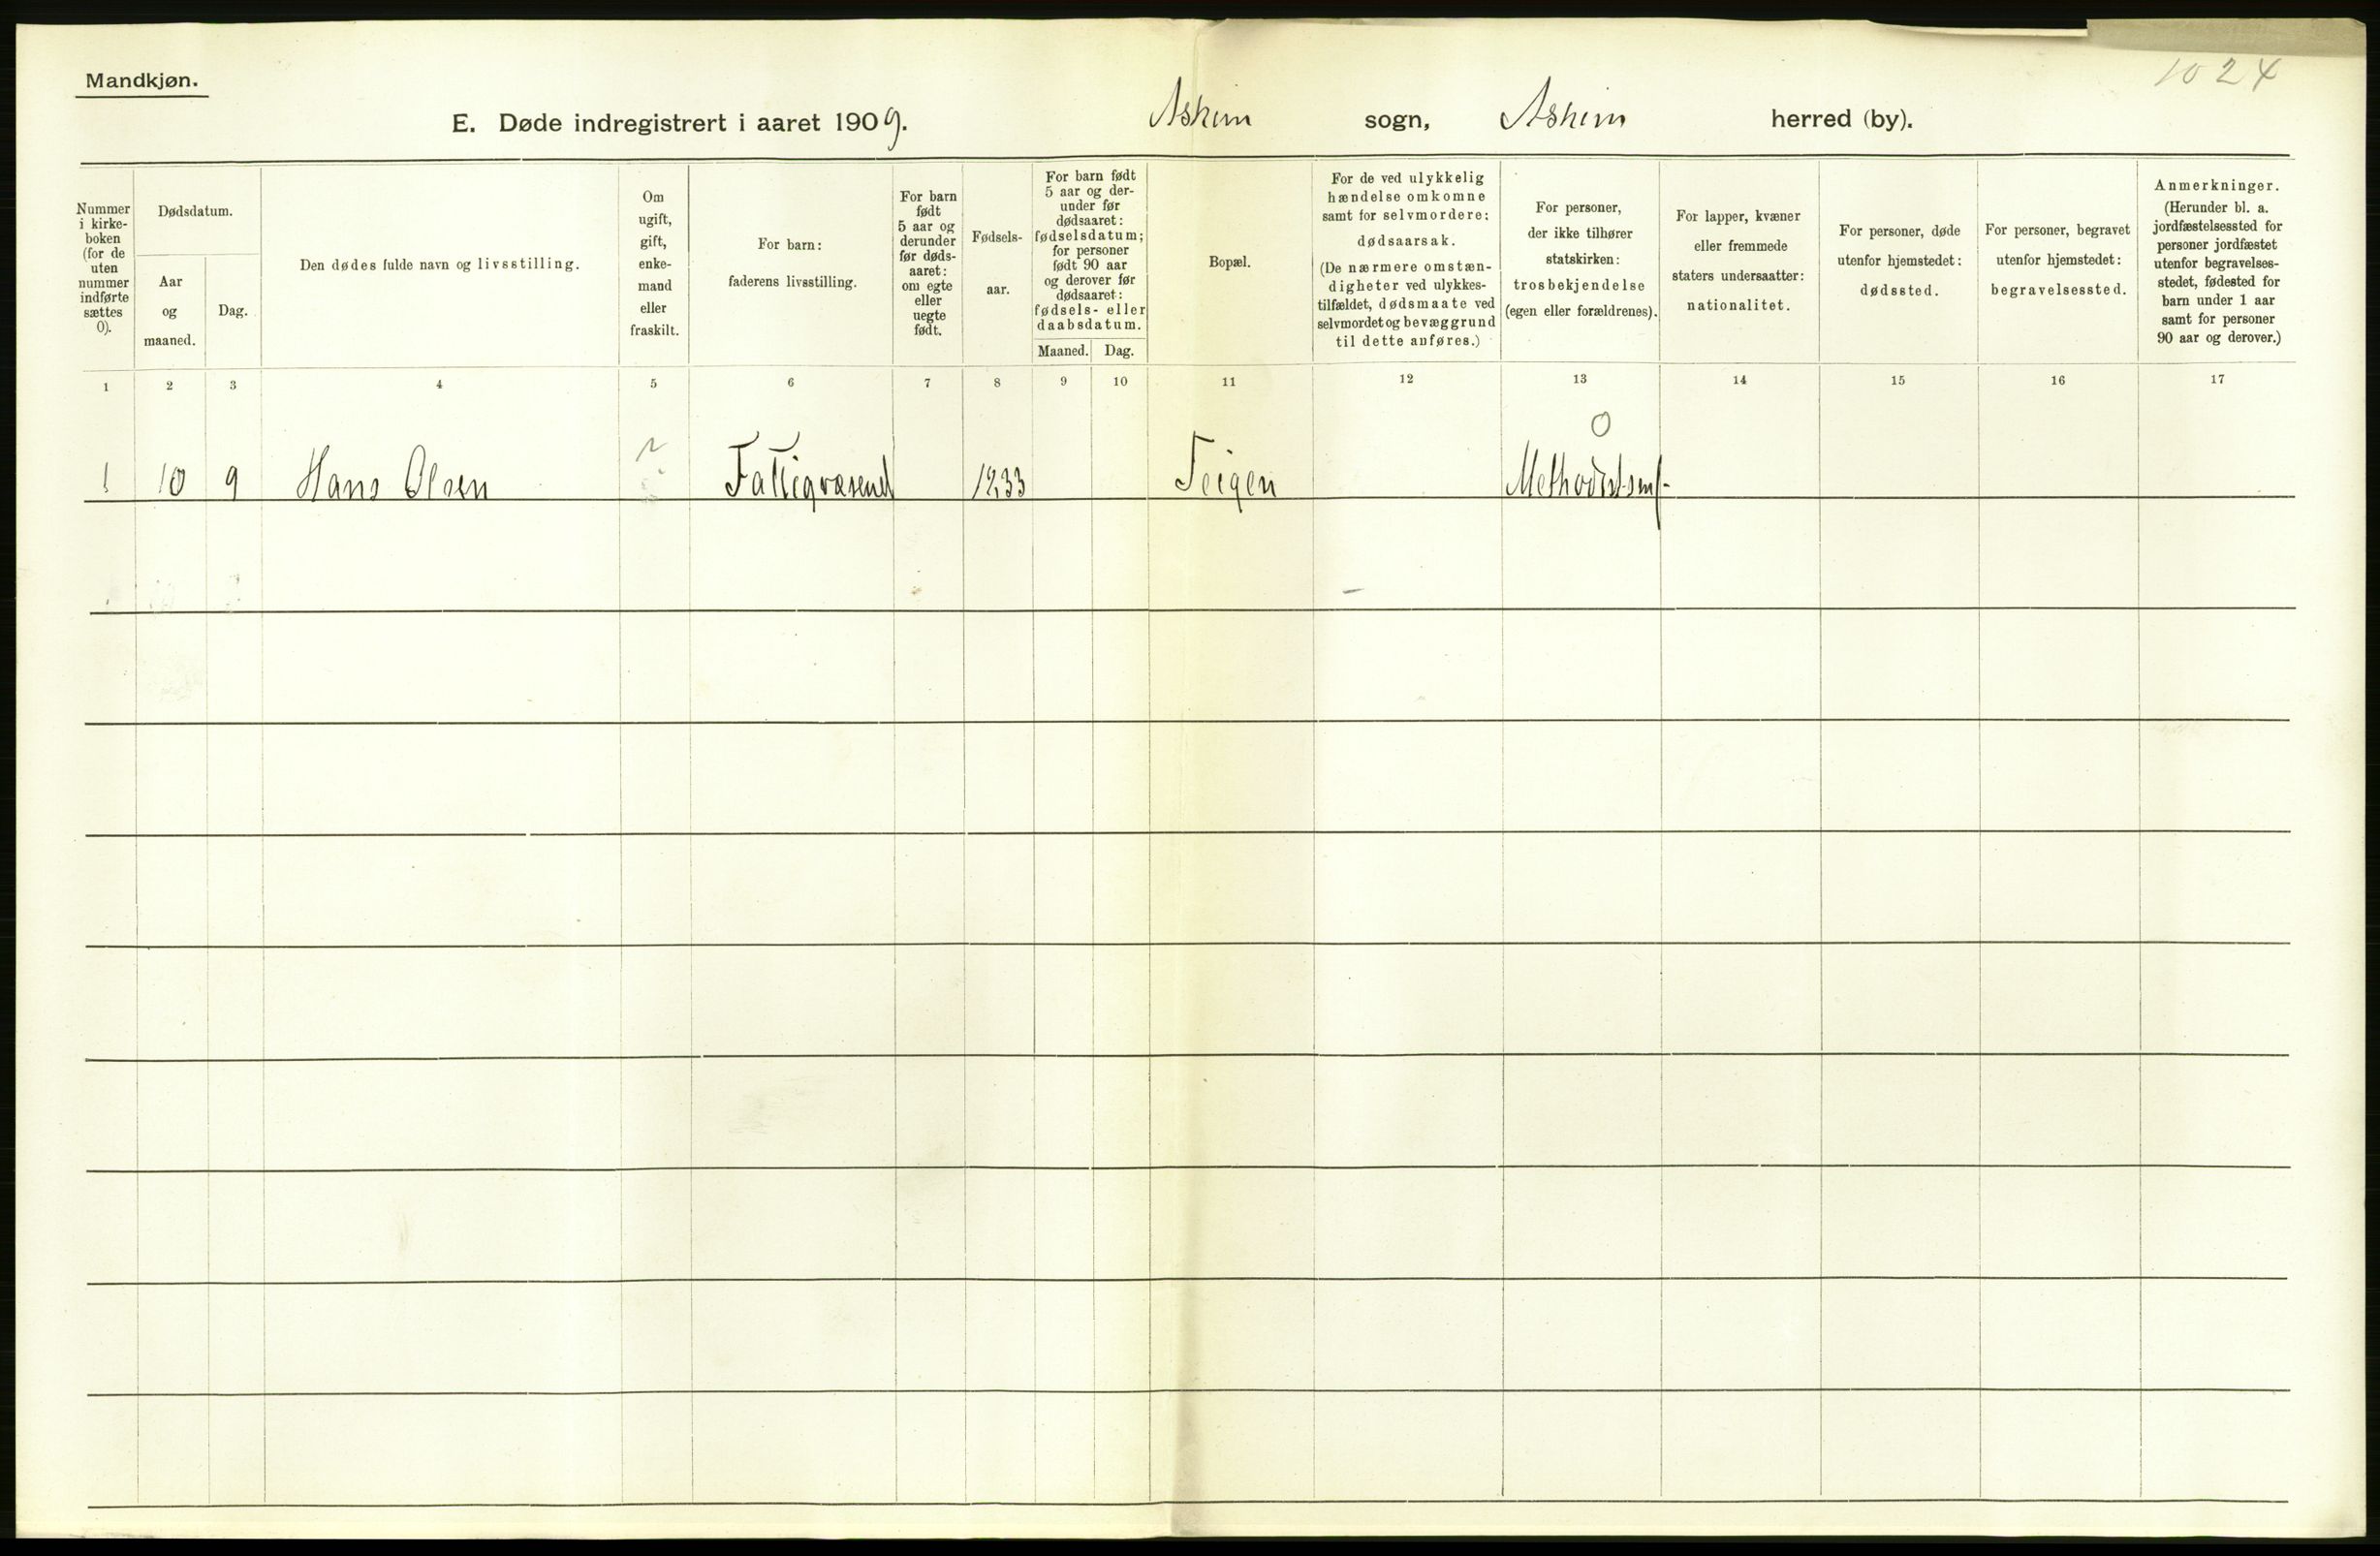 Mandkjøn.
1024
E. Døde indregistrert i aaret 1909. Askim sogn, Askim herred (by).
Nummer i kirke-boken (for de uten nummer indførte sættes 0).
Dødsdatum.
Aar og maaned.
Dag.
Den dødes fulde navn og livsstilling.
Om ugift, gift, enke-mand eller fraskilt.
For barn: faderens livsstilling.
For barn født 5 aar og derunder før døds-aaret: om egte eller uegte født.
Fødsels-aar.
For barn født 5 aar og der-under før dødsaaret: fødselsdatum; for personer født 90 aar og derover før dødsaaret: fødsels- eller daabsdatum.
Maaned. Dag.
Bopæl.
For de ved ulykkelig hændelse omkomne samt for selvmordere: dødsaarsak. (De nærmere omstæn-digheter ved ulykkes-tilfældet, dødsmaate ved selvmordet og bevæggrund til dette anføres.)
For personer, der ikke tilhører statskirken: trosbekjendelse (egen eller forældrenes).
For lapper, kvæner eller fremmede staters undersaatter: nationalitet.
For personer, døde utenfor hjemstedet: dødssted.
For personer, begravet utenfor hjemstedet: begravelsessted.
Anmerkninger. (Herunder bl. a. jordfæstelsessted for personer jordfæstet utenfor begravelses-stedet, fødested for barn under 1 aar samt for personer 90 aar og derover.)
1 2 3 4 5 6 7 8 9 10 11 12 13 14 15 16 17
0
1 10 9 Hans Olsen Fattigvæsenet 1833 Teigen